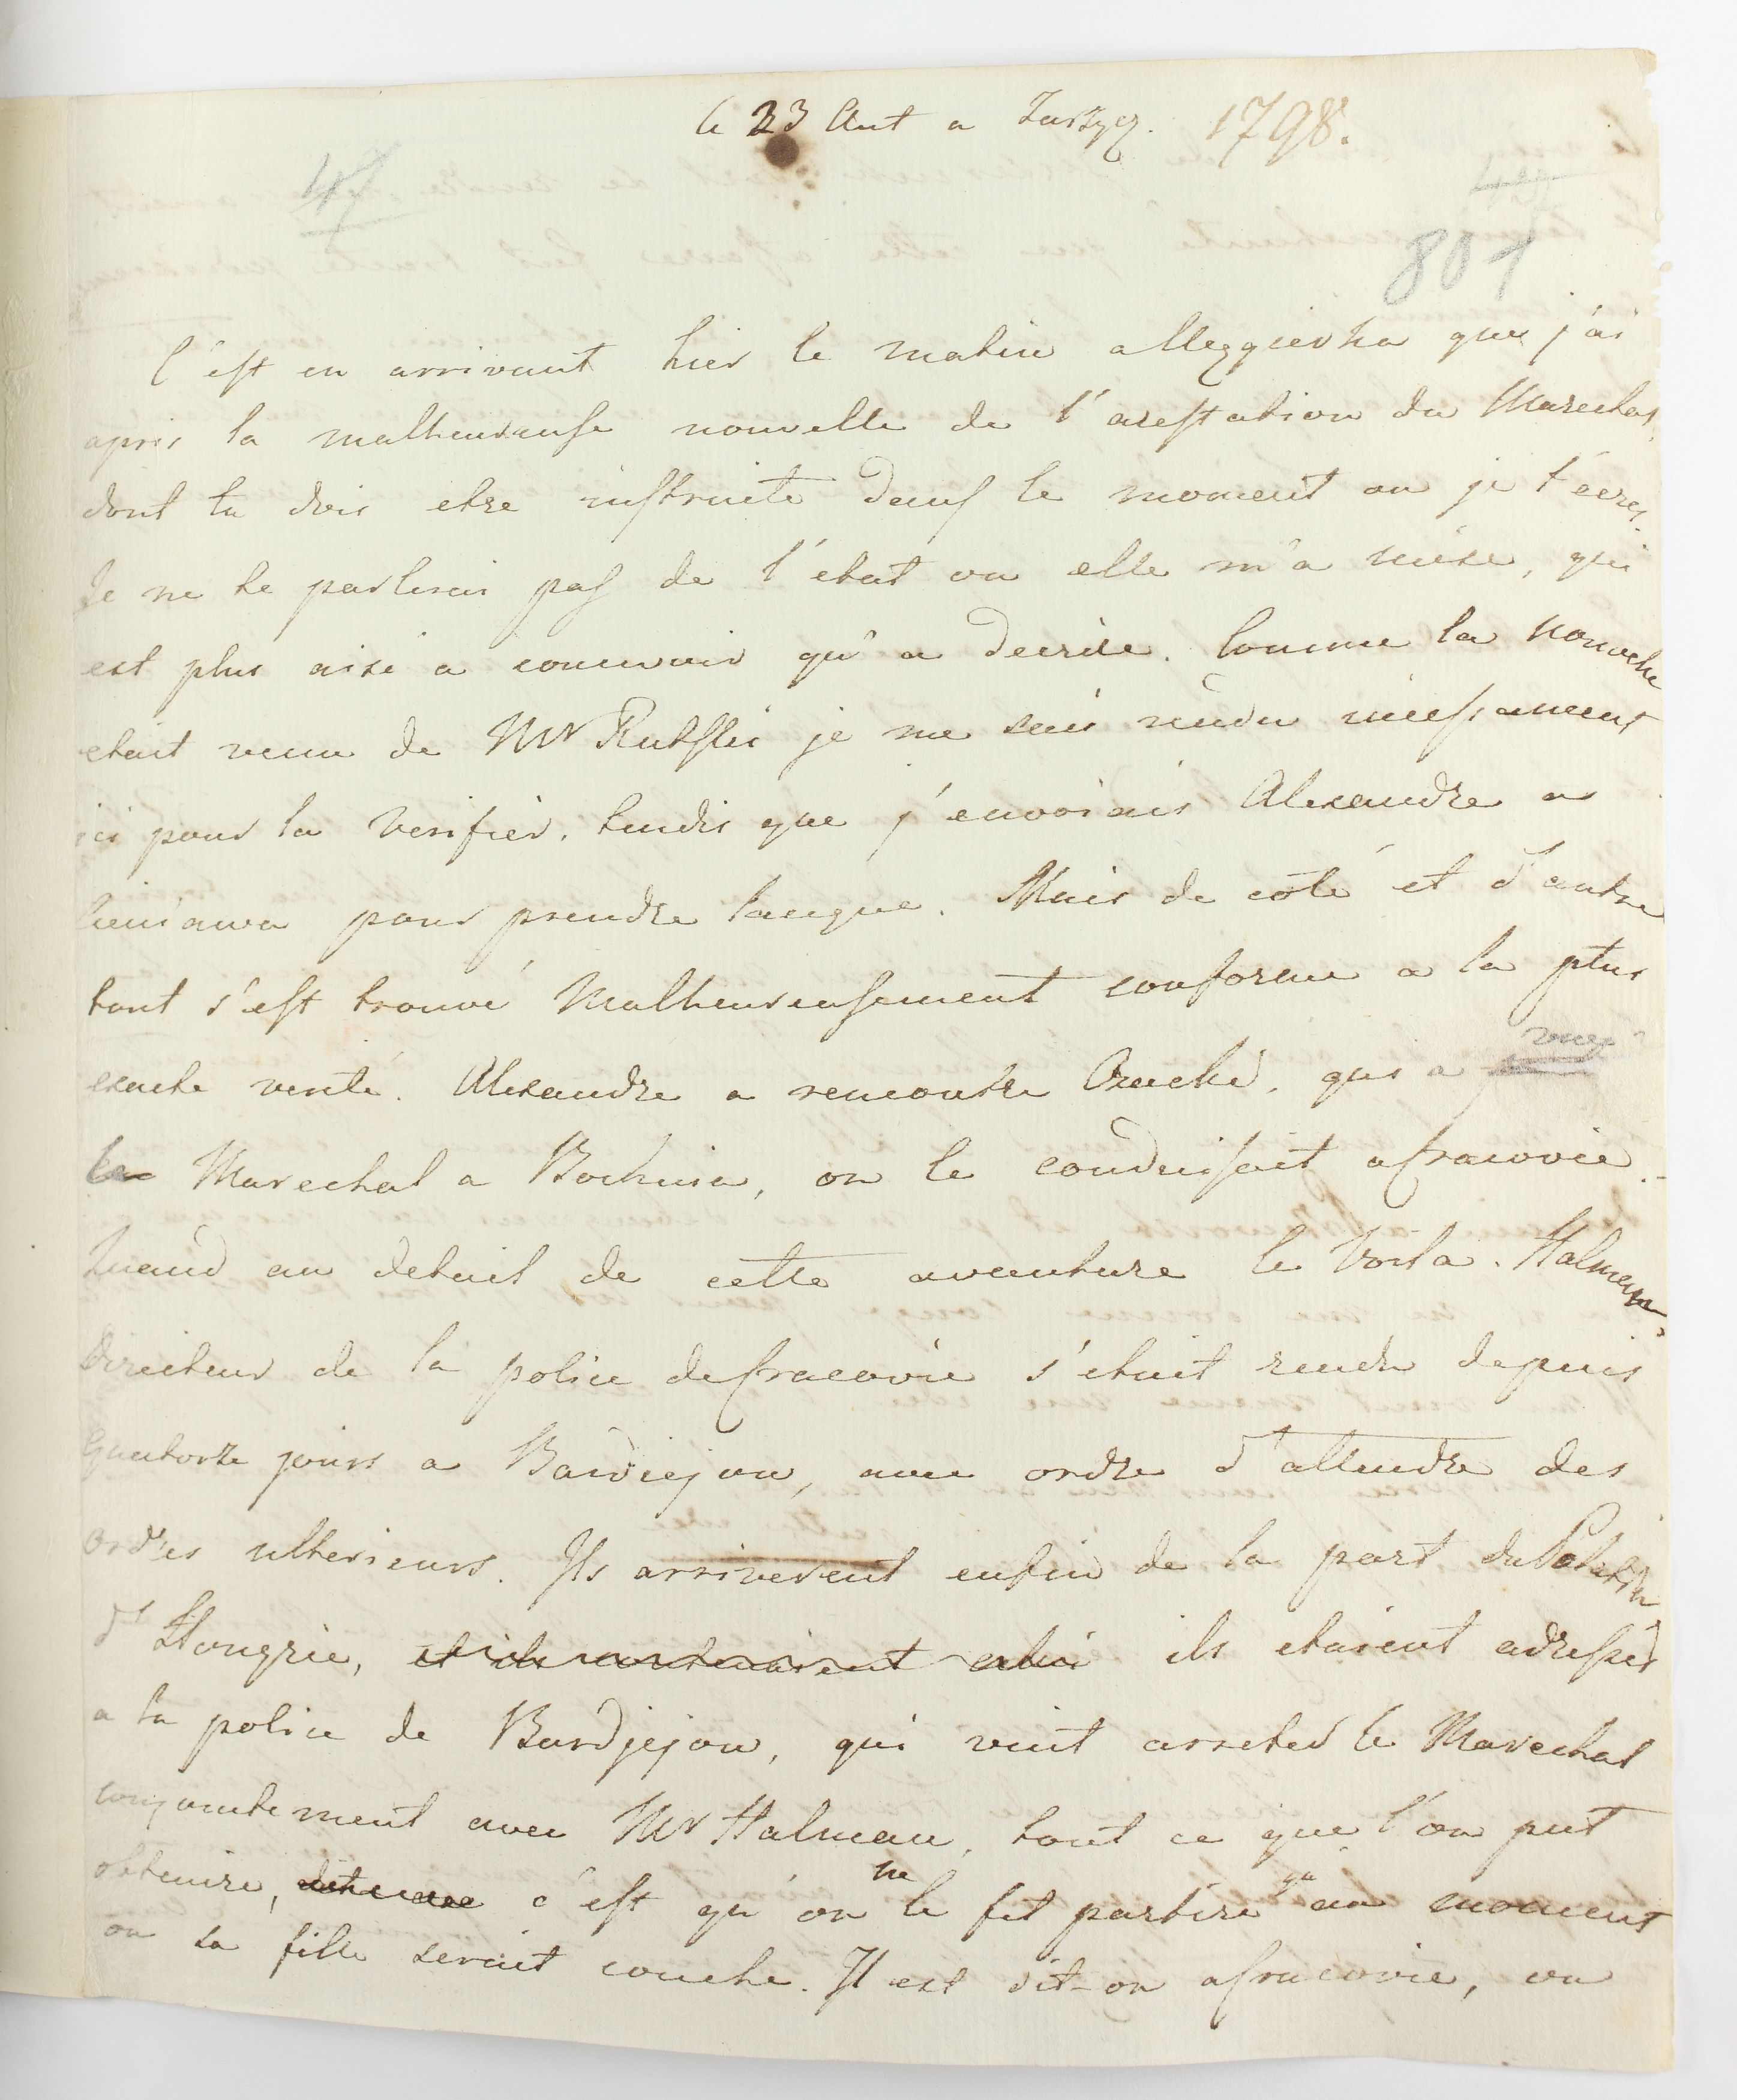 le 23 Aut a Zarzyc. 1798.
47
801
C'est en arrivant hier le matin a Меggierka que j'ai
apris la malheureuse nouvelle de l'arestation du Marechal,
dont tu dois etre instruite dans le moment ou je t'ecres.
Je ne te parlerai pas de l'etat ou elle m'a mise, qui
est plus aisé a concevoir qu'a decrire. Comme la nouvelle
etait venu de Mr Rutski je me suis rendu incessament
ici pour la verifier, tandis que j'envoiais Alexandre a
Sieniawa pour prendre langue. Mais de coté et d'autre
tout s'est trouvé malheureusement conforme a la plus
exacte verité. Alexandre a rencontre Orucki, qui a vuy
le Marechal a Bochnia, on le conduisait a Cracovie.-
Quand au detail de cette aventure le voila. Halman,
Directeur de la police de Cracovie s'etait rendu depuis
quatorze jours a Bardiejow, avec ordre d'attendre des
ordres ulterieurs. Ils arriverent enfin de la part du Palatin
d'Hongrie, et ils ils etaient adressés
a la police de Bardjejow, qui vint arreter le Marechal
conjointement avec Mr Halman, tout ce que l'on put
obtenire, c'est qu'on ne le fit partire qu'au moment
ou sa fille serait couche. Il est dit-on a Cracovie, ou